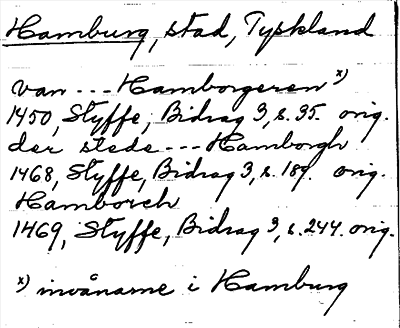 Hamburg, stad, Tyskland
van --- Hamborgeren x)
1450, Styffe, Bidrag 3, s. 35. orig.
der stede --- Hamborgh
1468, Styffe, Bidrag 3, s. 189. orig.
Hamborch
1469, Styffe, Bidrag 3, s. 244. orig.
x) invånarne i Hamburg